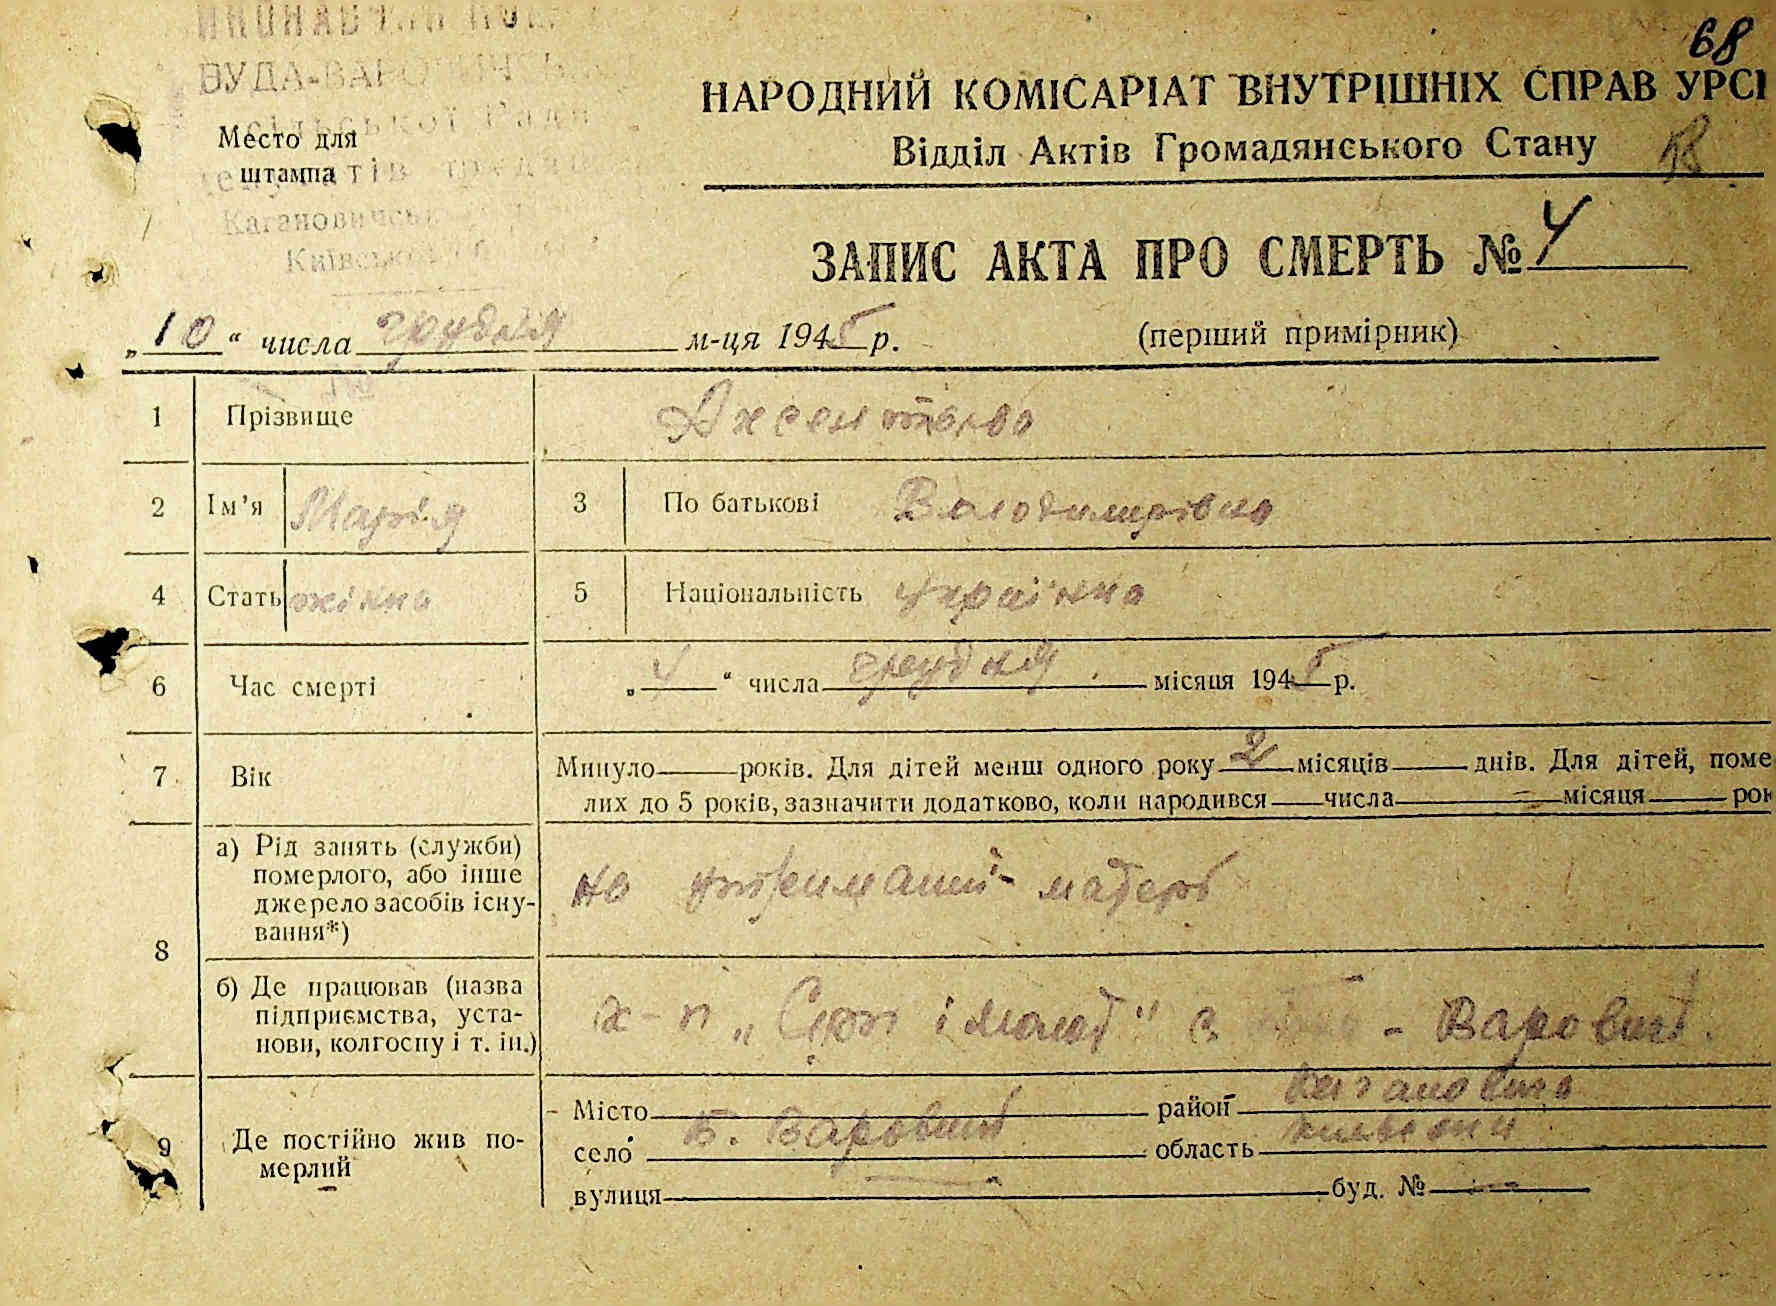 68
БУДА-ВАРОВИЧСЬ
сільської Ради
Кагановичськ
Київської об
Место для
штампа
НАРОДНИЙ КОМІСАРІАТ ВНУТРІШНІХ СПРАВ УРСІ
Відділ Актів Громадянського Стану
ЗАПИС АКТА ПРО СМЕРТЬ № 4
„10“ числа грудня м-ця 1945 р.
(перший примірник)
1 Прізвище
2 Ім'я Марія 3 По батькові Володимирівна
4 Стать жінка 5 Національність українка
6 Час смерті „4“ числа грудня місяця 1945 р.
7 Вік Минуло років. Для дітей менш одного року 2 місяців днів. Для дітей, поме
лих до 5 років, зазначити додатково, коли народився числа місяця рок
8 а) Рід занять (служби)
померлого, або інше
джерело засобів існу-
вання*)
на утриманні матері
б) Де працював (назва
підприємства, уста-
нови, колгоспу і т. ін.)
к-п „Серп і молот" с - Варовичі.
9 Де постійно жив по-
мерлий
Місто район
село Б. Варовичі область
вулиця буд. №